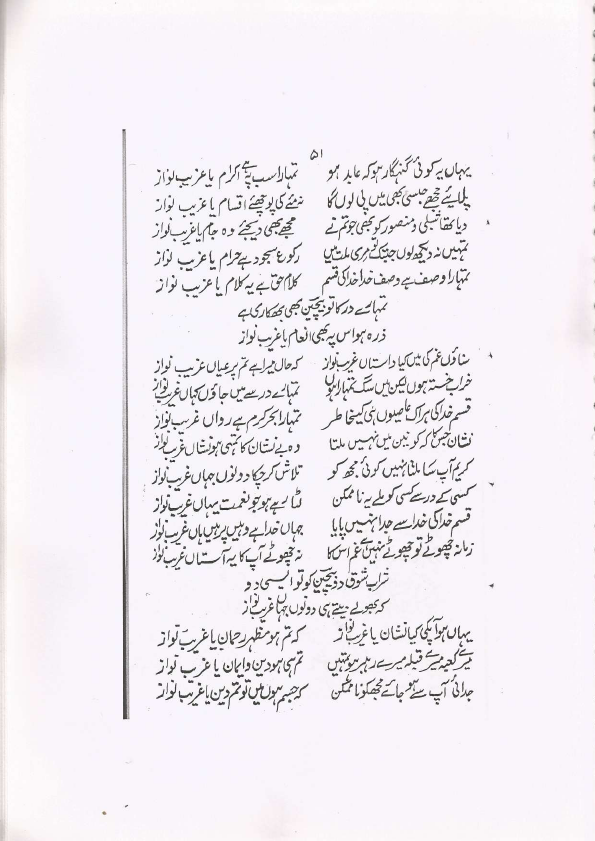 ۵۱
یہاں پہ کوئی گنہگار ہو کہ عابد ہو تمہارا سب پہ ہے اکرم یا غریب نواز
پلائیے مجھے جیسی بھی میں پی لوں گا نہ مئے کی پوچھئے اقسام یا غریب نواز
دیا تھا شبلی و منصور کو بھی جو تم نے مجھے بھی دیجئے وہ جام یا غریب نواز
تمہیں نہ دیکھ لوں جبتک مری ملت میں رکوع سجود ہے حرام یا غریب نواز
تمہارا وصف ہے وصف خدا خدا کی قسم کلام حق ہے یہ کلام یا غریب نواز
تمہارے در کا تو بیچین بھی بھکاری ہے
ذرہ ہو اس پہ بھی انعام یا غریب نواز
سناؤں غم کی میں کیا داستاں غریب نواز کہ حال میرا ہے تم پر عیاں غریب نواز
خراب خستہ ہوں لیکن میں سگ تمہارا ہوں تمہارے در سے میں جاؤں کہاں غریب نواز
قسم خدا کی ہر اک عاصیوں ہی کی خاطر تمہارا بحر کرم ہے رواں غریب نواز
نشان جس کا کہ کونین میں نہیں ملتا وہ بے نشان کا تمہی ہو نشاں غریب نواز
کریم آپ سا ملتا نہیں کوئی مجھ کو تلاش کر چکا دونوں جہاں غریب نواز
کسی کے در سے کسی کو ملے یہ نا ممکن لٹا رہے ہو جو نعمت یہاں غریب نواز
قسم خدا کی خدا سے جدا نہیں پایا جہاں خدا ہے وہیں پر ہیں ہاں غریب نواز
زمانہ چھوٹے تو چھوٹے نہیں ہے غم اس کا نہ چھوٹے آپ کا یہ آستاں غریب نواز
شراب شوق دو بیچین کو تو ایسی دو
کہ بھولے پیتے ہی دونوں جہاں غریب نواز
یہاں ہو آپکی کیا نشان یا غریب نواز کہ تم ہو مظہر رحمان یا غریب نواز
میرے کعبہ میرے قبلہ میرے رہبر ہو تمہیں تم ہی ہو دین و ایمان یا غریب نواز
جدائی آپ سے ہو جائے مجھکو نا ممکن کہ جسم ہوں میں تو تم دین یا غریب نواز